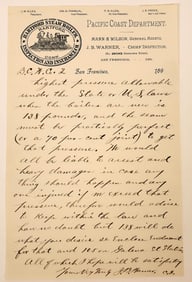 HARTFORD STEAM BOILER
HARTFORD
CONN.
INSPECTION AND INSURANCE
PACIFIC COAST DEPARTMENT.
MANN & WILSON, GENERAL AGENTS,
J. B. WARNER, CHIEF INSPECTOR,
SAN FRANCISCO, CAL.
San Francisco, 189
highest pressure allowable
under the State or U.S. Laws
when the boilers are new is
138 pounds, and the seam
must be practically perfect
(or a 70 per cent joint) to get
that pressure. We would
all be liable to assess and
heavy damages in case any
thing should happen and any
one injured if we exceed that
pressure, therefore would advise
to keep within the law and
have no doubt but 138 will do
what you desire.
for that and
All of which I hope will be satisfactory
Yours